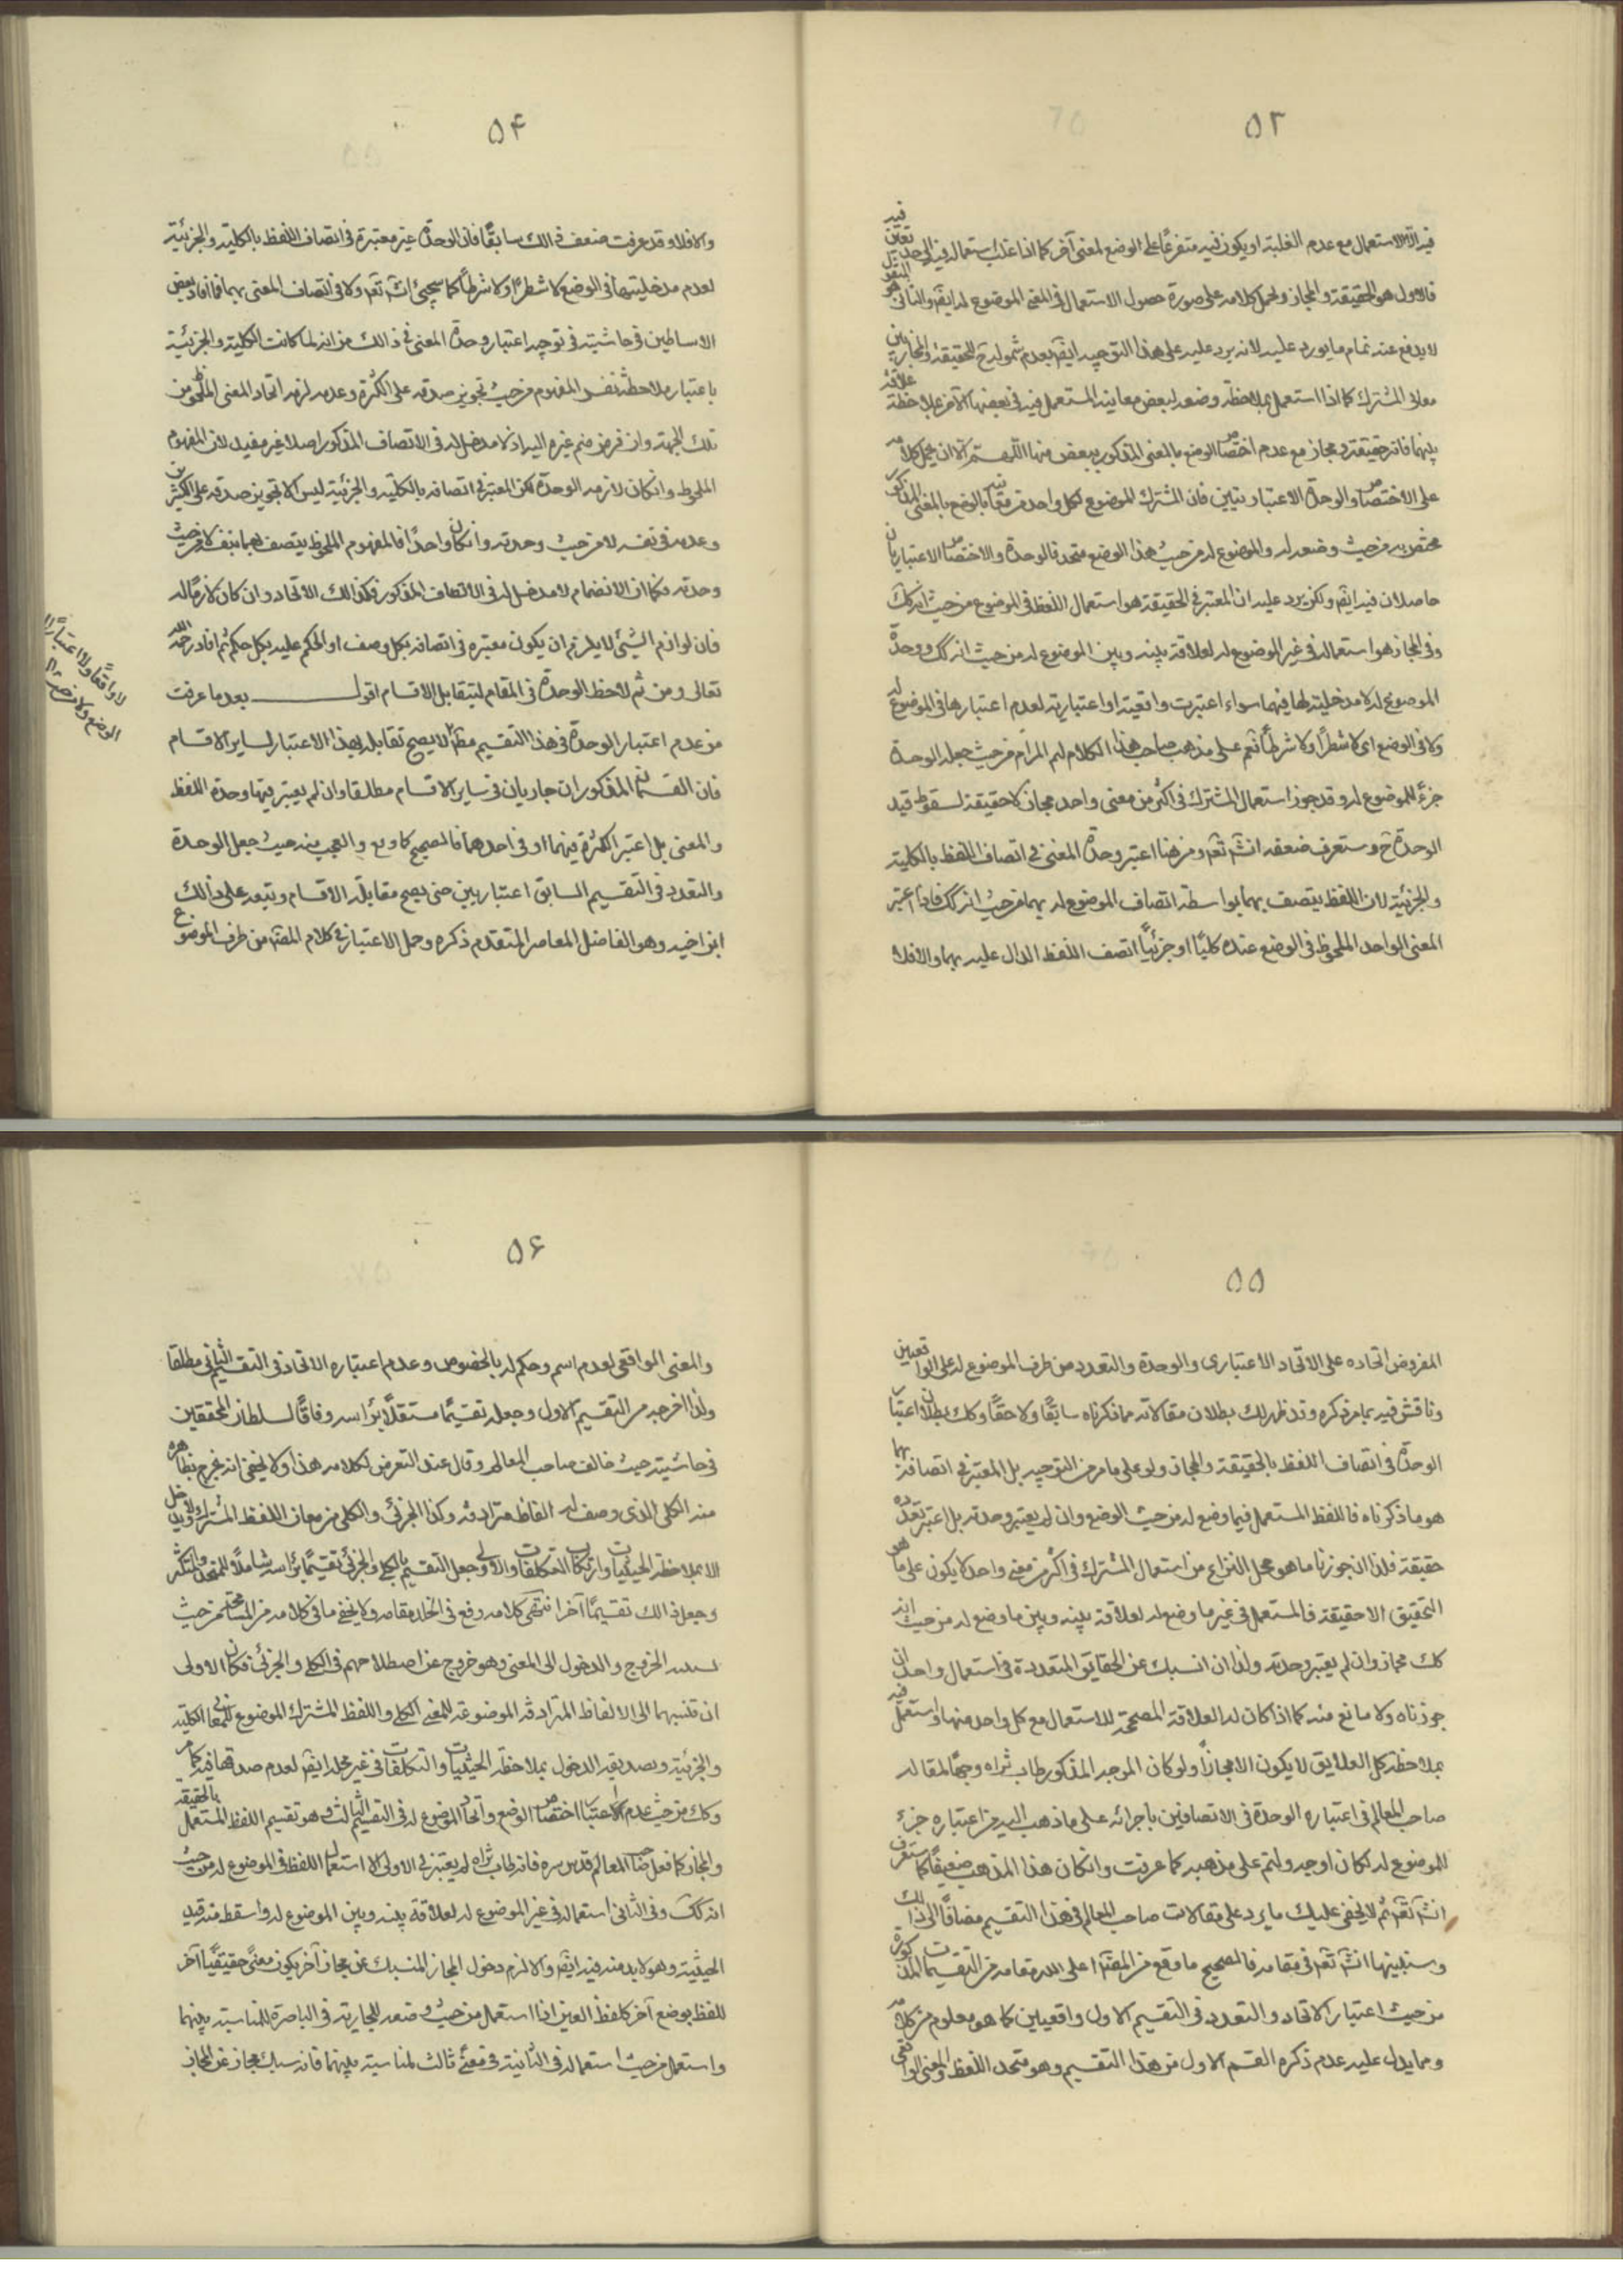 ۵۳
فيه الا الاستعمال مع عدم الغلبة او يكون فيه متفرعا على الوضع لمعنى آخر كما اذا غلب استعماله فيه
فالاول هو الحقيقة والمجاز وحمل كلامه على صورة حصول الاستعمال فى المعنى الموضوع له ايضا والثانى هو
لا يدفع عنه تمام ما يورد عليه لانه يرد عليه على هذا التوجيه ايضا بعدم شموله ح للحقيقة والمجاز بين
معانى المشترك كما اذا استعمل بملاحظة وضعه لبعض معانيه المستعمل فيه فى بعضها الآخر بملاحظة علاقة
بينهما فانه حقيقة ومجاز مع عدم اختصاص الوضع بالمعنى المذكور ببعض منها اللهم الا ان يحمل كلامه
على الاختصاص والوحدة الاعتباريتين فان المشترك الموضوع لكل واحد من معانيه بالوضع بالمعنى المذكور
مختص به من حيث وضعه له والموضوع له من حيث هذا الوضع متحد فالوحدة والاختصاص الاعتباريان
حاصلان فيه ايضا ولكن يرد عليه ان المعتبر فى الحقيقة هو استعمال اللفظ فى الموضوع من حيث انه كك
وفى المجاز هو استعماله فى غير الموضوع له لعلاقة بينه وبين الموضوع له من حيث انه كك ووحدة
الموضوع له لا مدخلية لها فيهما سواء اعتبرت واقعية او اعتبارية لعدم اعتبارها فى الموضوع له
ولا فى الوضع اى لا شطرًا ولا شرطًا نعم على مذهب صاحب هذا الكلام لتم المرام من حيث جعله الوحدة
جزء للموضوع له وقد جوز استعمال المشترك فى اكثر من معنى واحد مجازا لا حقيقة لسقوط قيد
الوحدة ح وستعرف ضعفه انشا تعا ومن هنا اعتبر وحدة المعنى فى اتصاف اللفظ بالكلية
والجزئية لان اللفظ يتصف بهما بواسطة اتصاف الموضوع له بهما من حيث انه كك فاذا اعتبر
المعنى الواحد الملحوظ فى الوضع عنده كليًا او جزئيًا اتصف اللفظ الدال عليه بهما والا فلا
۵۴
والا فلا وقد عرفت ضعف ذالك سابقًا فان الوحدة غير معتبرة فى اتصاف اللفظ بالكلية والجزئية
لعدم مدخليتها فى الوضع لا شطرًا ولا شرطًا كما سيجئ انشا تعا ولا فى اتصاف المعنى بهما فما افاد بعض
الاساطين فى حاشيته فى توجيه اعتبار وحدة المعنى فى ذالك من انه لما كانت الكلية والجزئية
باعتبار ملاحظة نفس المفهوم من حيث تجويز صدقه على الكثرة وعدمه لزم اتحاد المعنى الملحوظ من
تلك الجهة وان فرض ضم غيره اليه اذ لا مدخل له فى الاتصاف المذكور اصلا غير مفيد لان المفهوم
الملحوظ وانكان لازمه الوحدة لكن المعتبر فى اتصافه بالكلية والجزئية ليس الا تجويز صدقه على الكثيرين
وعدمه فى نفسه لا من حيث وحدته وانكان واحدًا فالمفهوم الملحوظ يتصف بهما بنفسه لا من حيث
وحدته فكما ان الانضمام لا مدخل له فى الاتصاف المذكور فكذالك الاتحاد وان كان لازمًا له
فان لوازم الشئ لا يلزم ان يكون معتبره فى اتصافه بكل وصف او الحكم عليه بكل حكم ثم افاد رحمه الله
تعالى ومن ثم لاحظ الوحدة فى المقام لتتقابل الاقسام اقول بعد ما عرفت
من عدم اعتبار الوحدة فى هذا التقسيم مط لا يصح تقابله بهذا الاعتبار لساير الاقسام
فان القسمان المذكوران جاريان فى ساير الاقسام مطلقا وان لم يعتبر فيها وحدة اللفظ
والمعنى بل اعتبر الكثرة فيهما او فى احدهما فالصحيح والعجب منه حيث جعل الوحدة
والتعدد فى التقسيم السابق اعتباريين حتى يصح مقابلة الاقسام وتبعه على ذالك
ابن اخيه وهو الفاضل المعاصر المتقدم ذكره وحمل الاعتبار فى كلام المصنف من طرف الموضوع
لا واقعًا ولا اعتبارًا
۵۵
المفروض اتحاده على الاتحاد الاعتبارى والوحدة والتعدد من طرف الموضوع له على الواقعيين
وناقش فيه بما مر ذكره وقد ظهر لك بطلان مقالاته مما ذكرناه سابقًا ولاحقًا وكك بطلان اعتبار
الوحدة فى اتصاف اللفظ بالحقيقة والمجاز ولو على ما مر من التوجيه بل المعتبر فى اتصافه بهما
هو ما ذكرناه فاللفظ المستعمل فيما وضع له من حيث الوضع وان لم يعتبر وحدته بل اعتبر تعدده
حقيقة فلذا ان جوزنا ما هو محل النزاع من استعمال المشترك فى اكثر من معنى واحد لا يكون على ما هو
التحقيق الا حقيقة فالمستعمل فى غير ما وضع له لعلاقة بينه وبين ما وضع له من حيث انه
كك مجاز وان لم يعتبر وحدته ولذا ان انسبك عن الحقايق المتعددة فى استعمال واحد ان
جوزناه ولا مانع منه كما اذا كان له العلاقة المصححة للاستعمال مع كل واحد منها واستعمل فيه
بملاحظة كل العلايق لا يكون الا مجازًا ولو كان الموجه المذكور طاب ثراه وجها لمقالة
صاحب المعالم فى اعتباره الوحدة فى الاتصافين باجرائه على ما ذهب اليه من اعتباره جزء
للموضوع له لكان اوجه ولتم على مذهبه كما عرفت وانكان هذا المذهب ضعيفًا كما ستعرف
انشا تعا ثم لا يخفى عليك ما يرد على مقالات صاحب المعالم فى هذا التقسيم مضافًا الى ذالك
وسنبينها انشا تعا فى مقامه فالصحيح ما وقع من المصنف اعلى الله مقامه من التقسيمات المذكورة
من حيث اعتبار الاتحاد والتعدد فى التقسيم الاول واقعيين كما هو معلوم من كلامه
ومما يدل عليه عدم ذكره القسم الاول من هذا التقسيم وهو متحد اللفظ والمعنى الواقعى
۵۶
والمعنى الواقعى لعدم اسم وحكم له بالخصوص وعدم اعتباره الاتحاد فى التقسيم الثانى مطلقا
ولذا اخرجه من التقسيم الاول وجعله تقسيمًا مستقلًا برأسه وفاقًا لسلطان المحققين
فى حاشيته حيث خالف صاحب المعالم وقال عند التعرض لكلامه هذا ولا يخفى انه يخرج بظاهره
منه الكلى الذى وصف له الفاظ مترادفه وكذا الجزئى والكلى من معان اللفظ المشترك ولا يدخل
الا بملاحظة الحيثيات وارتكاب التكلفات والاولى جعل التقسيم بالكلى والجزئى تقسيمًا برأسه شاملًا للمتحد والمتكثر
وجعل ذالك تقسيمًا آخر انتهى كلامه رفع فى الخلد مقامه ولا يخفى ما فى كلامه من المسامحة من حيث
نسبة الخروج والدخول الى المعنى وهو خروج عن اصطلاحهم فى الكلى والجزئى فكان الاولى
ان تنسبهما الى الالفاظ المترادفة الموضوعة للمعنى الكلى واللفظ المشترك الموضوع للمعانى الكلية
والجزئية وتصديقه الدخول بملاحظة الحيثيات والتكلفات فى غير محله ايضا لعدم صدقهما فيه كما مر
وكك من حيث عدم الاعتبار اختصاص الوضع واتحاد الموضوع له فى التقسيم الثالث وهو تقسيم اللفظ المستعمل بالحقيقة
والمجاز كما فعل صاحب المعالم قدس سره فانه طاب ثراه لم يعتبر فى الاولى الا استعمال اللفظ فى الموضوع له من حيث
انه كك وفى الثانى استعماله فى غير الموضوع له لعلاقة بينه وبين الموضوع له واسقط منه قيد
الحيثية وهو لا بد منه فيه ايضا والا لزم دخول المجاز المنسبك عن مجاز آخر يكون معنى حقيقيًا آخر
للفظ بوضع آخر كلفظ العين اذا استعمل من حيث وضعه للجارية فى الباصرة للمناسبة بينهما
واستعمل من حيث استعماله فى الثانية فى معنى ثالث لمناسبة بينهما فانه سبك مجاز عن المجاز